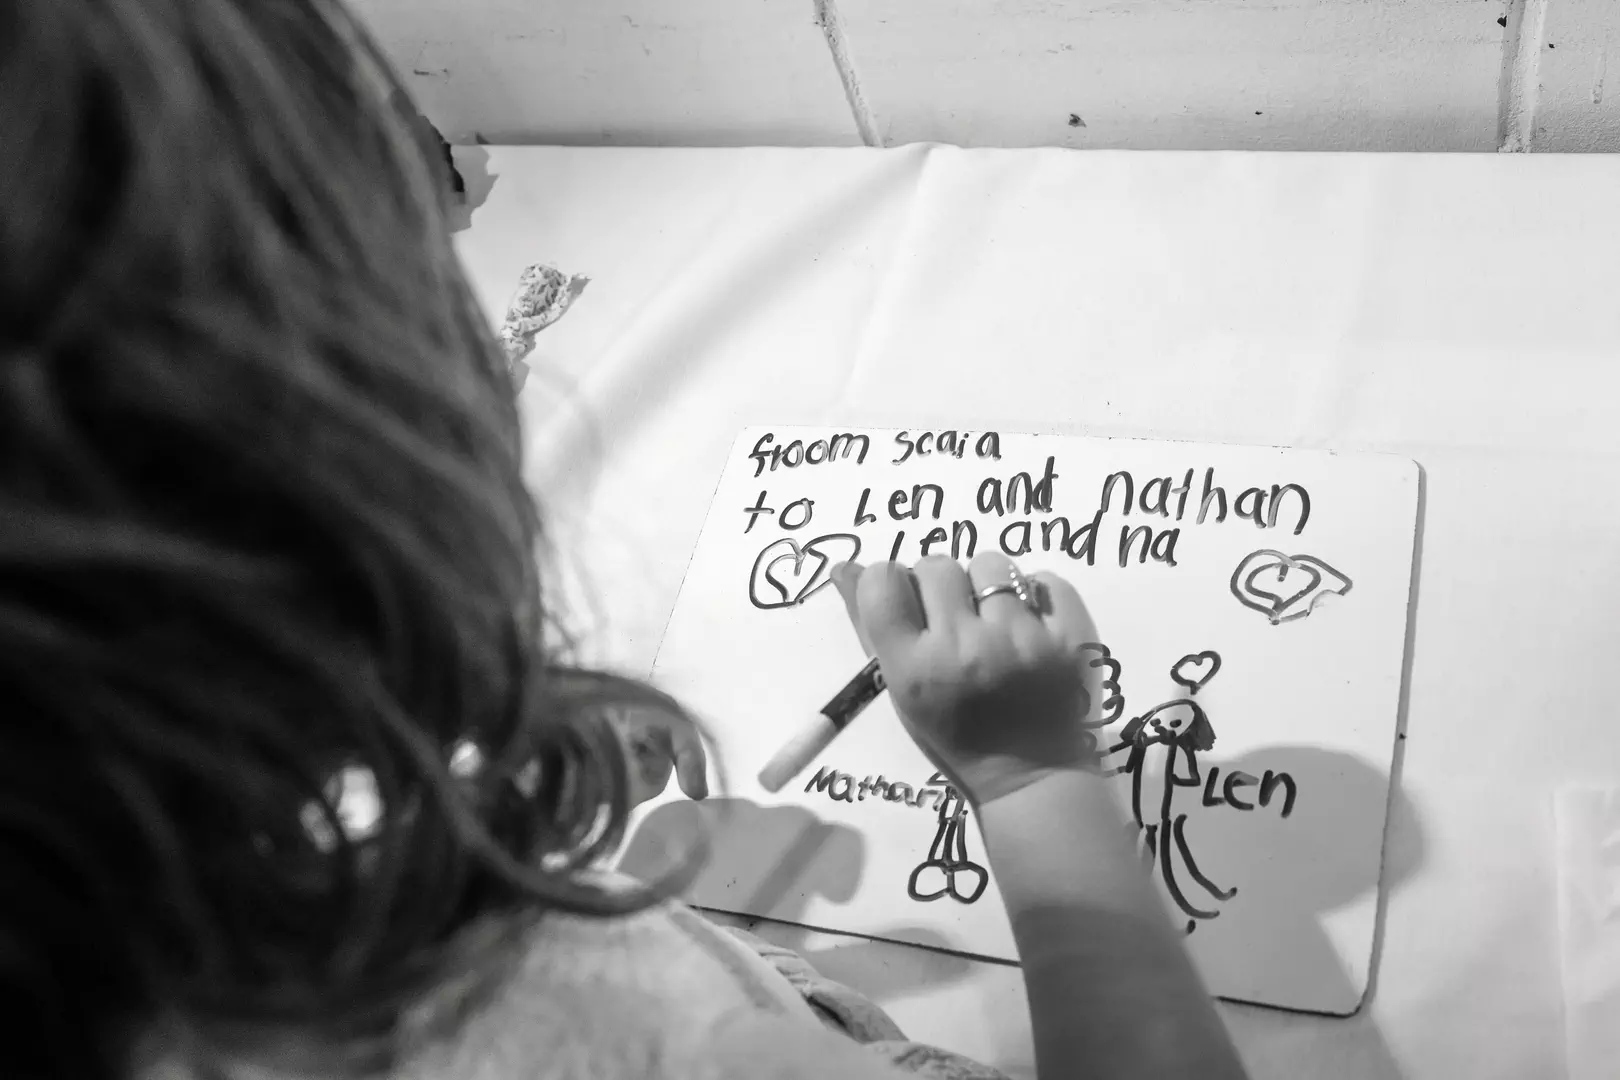 froom scaia
to Len and nathan
Len and na
Nathan
Len